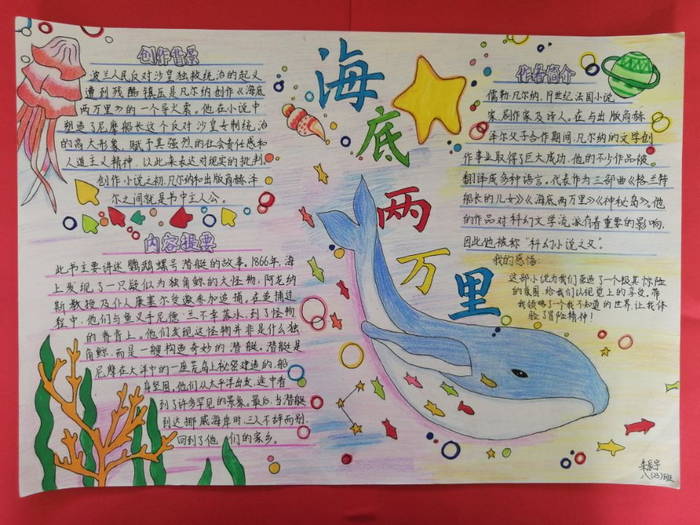 创作背景
波兰人民反对沙皇独裁统治的起义
遭到残酷镇压是凡尔纳创作《海底
两万里》的一个导火索。他在小说中
塑造了尼摩船长这个反对沙皇专制统治
的高大形象,赋予其强烈的社会责任感和
人道主义精神,以此来表达对现实的批判
创作小说之初,凡尔纳和出版商赫泽
尔之间就是书中主人公。
内容提要
此书主要讲述鹦鹉螺号潜艇的故事,1866年,海
上发现了一只疑似为独角鲸的大怪物,阿龙纳
斯教授及仆人康塞尔受邀参加追捕,在追捕过
程中,他们与鱼叉手尼德·兰不幸落水,到了怪物
的脊背上。他们发现这怪物并非是什么独
角鲸,而是一艘构造奇妙的潜艇。潜艇是
尼摩在大洋中的一座荒岛上秘密建造的,船
身坚固,他们从太平洋出发,途中看
到了许多罕见的景象。最后,当潜艇
到达挪威海岸时,三人不辞而别,
回到了他们的家乡。
海底两万里
作者简介
儒勒·凡尔纳,19世纪法国小说
家、剧作家及诗人。在与出版商赫
泽尔父子合作期间,凡尔纳的文学创
作事业取得了巨大成功,他的不少作品被
翻译成多种语言。代表作为三部曲《格兰特
船长的儿女》《海底两万里》《神秘岛》。他
的作品对科幻文学流派有着重要的影响,
因此他被称“科幻小说之父”。
我的感悟
这部小说为我们营造了一个极其惊险
的氛围,给我们以视觉上的享受,带
我领略了个我不知道的世界,让我体
验了冒险精神!
八(23)班